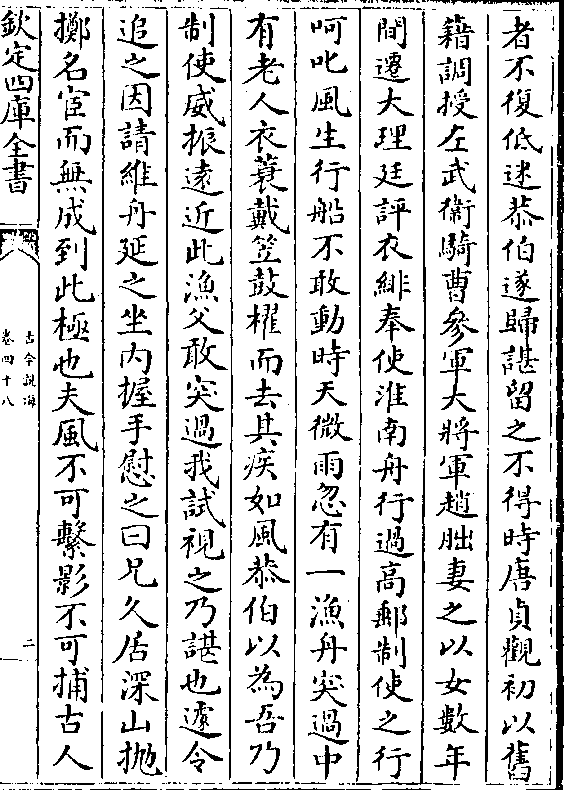 者不復低迷恭伯遂歸諶留之不得時唐貞觀初以舊
籍調授左武衛騎曹參軍大將軍趙朏妻之以女數年
間遷大理廷評衣緋奉使淮南舟行過高郵制使之行
呵叱風生行船不敢動時天微雨忽有一漁舟突過中
有老人衣蓑戴笠鼓櫂而去其疾如風恭伯以為吾乃
制使威振遠近此漁父敢突過我試視之乃諶也遽令
追之因請維舟延之坐内握手慰之曰兄久居深山抛
擲名宦而無成到此極也夫風不可繫影不可捕古人
欽定四庫全書
古今說海
卷四十八
二